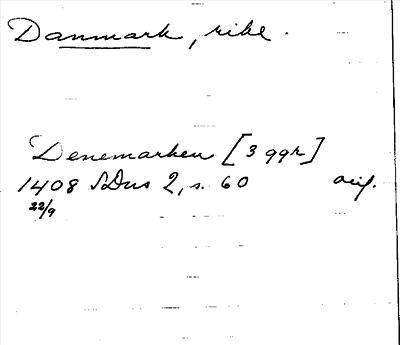 Danmark, rike.
Denemarken [3 ggr]
1408 SDns 2, s. 60 orig.
22/9